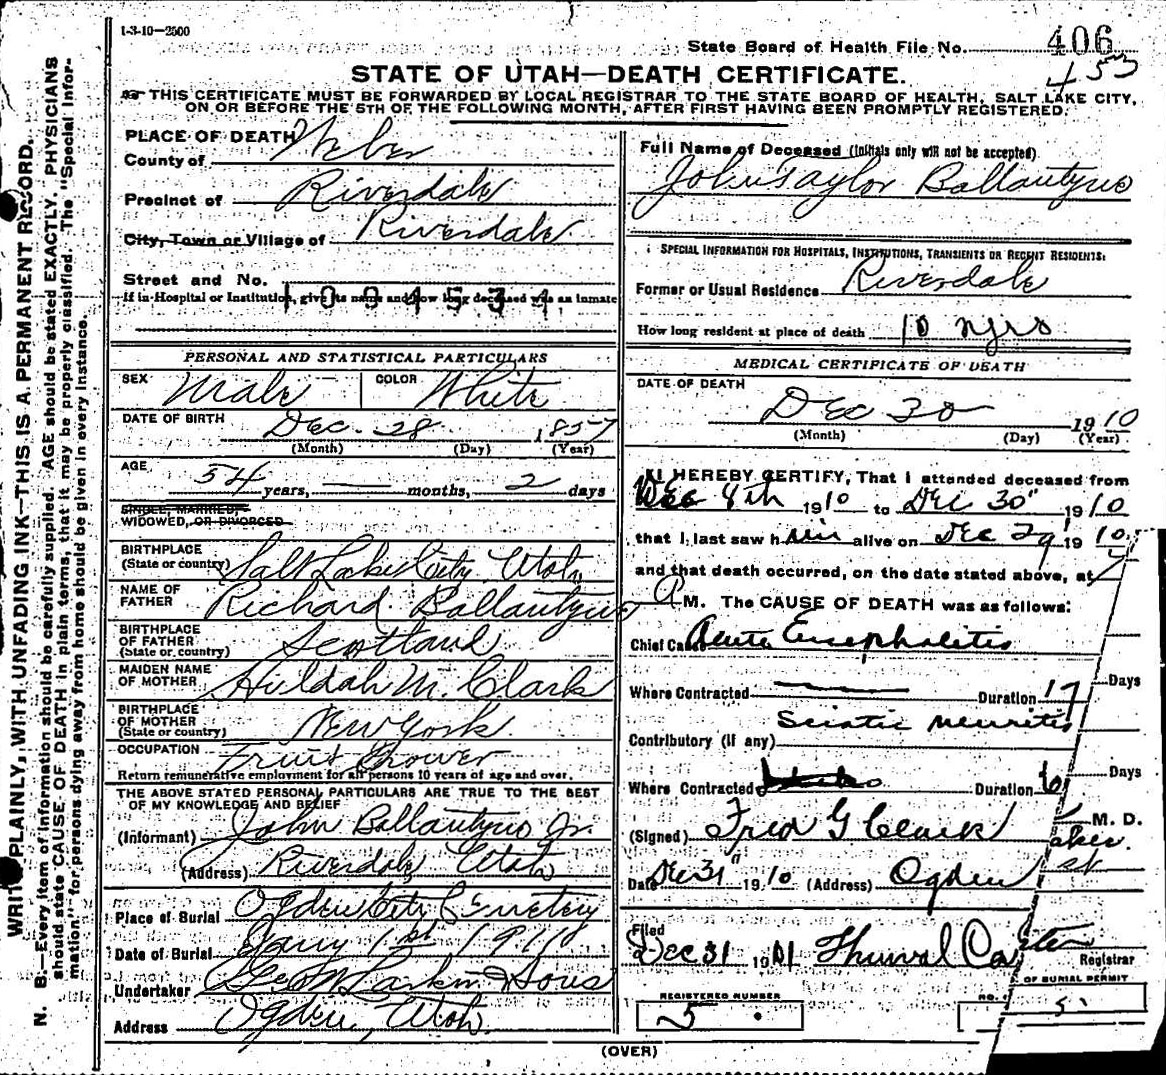 1-3-10—2500
State Board of Health File No. 406
453
STATE OF UTAH—DEATH CERTIFICATE.
THIS CERTIFICATE MUST BE FORWARDED BY LOCAL REGISTRAR TO THE STATE BOARD OF HEALTH, SALT LAKE CITY,
ON OR BEFORE THE 5TH OF THE FOLLOWING MONTH, AFTER FIRST HAVING BEEN PROMPTLY REGISTERED.
WRITE PLAINLY, WITH UNFADING INK—THIS IS A PERMANENT RECORD.
N. B.—Every item of information should be carefully supplied. AGE should be stated EXACTLY. PHYSICIANS
should state CAUSE OF DEATH in plain terms, that it may be properly classified. The "Special Infor-
mation" for persons dying away from home should be given in every instance.
PLACE OF DEATH
County of Weber
Precinct of Riverdale
City, Town or Village of Riverdale
Street and No.
If in Hospital or Institution, give its name and how long deceased was an inmate
1004534
PERSONAL AND STATISTICAL PARTICULARS
SEX Male COLOR White
DATE OF BIRTH Dec. 28 1857
(Month) (Day) (Year)
AGE 54 years, months, 2 days
SINGLE, MARRIED,
WIDOWED, OR DIVORCED
BIRTHPLACE
(State or country) Salt Lake City Utah
NAME OF
FATHER Richard Ballantyne
BIRTHPLACE
OF FATHER
(State or country) Scotland
MAIDEN NAME
OF MOTHER Huldah M. Clark
BIRTHPLACE
OF MOTHER
(State or country) New York
OCCUPATION Fruit Grower
Return remunerative employment for all persons 10 years of age and over.
THE ABOVE STATED PERSONAL PARTICULARS ARE TRUE TO THE BEST
OF MY KNOWLEDGE AND BELIEF
(Informant) John Ballantyne Jr.
(Address) Riverdale Utah
Place of Burial Ogden City Cemetery
Date of Burial Jany 1st 1911
Undertaker Geo W Larkin & Sons
Address Ogden, Utah.
Full Name of Deceased (Initials only will not be accepted)
John Taylor Ballantyne
SPECIAL INFORMATION FOR HOSPITALS, INSTITUTIONS, TRANSIENTS OR RECENT RESIDENTS:
Former or Usual Residence Riverdale
How long resident at place of death 10 yrs
MEDICAL CERTIFICATE OF DEATH
DATE OF DEATH
Dec 30 1910
(Month) (Day) (Year)
I HEREBY CERTIFY, That I attended deceased from
Dec 4th 1910 to Dec 30" 1910
that I last saw him alive on Dec 29 1910
and that death occurred, on the date stated above, at 7
A M. The CAUSE OF DEATH was as follows:
Chief Cause Acute Encephalitis
Where Contracted Duration 17 Days
Sciatic neuritis
Contributory (if any)
Where Contracted Duration 6 Days
(Signed) Fred G Clark M. D.
Date Dec 31" 1910 (Address) Ogden
Filed
Dec 31 1901 Registrar
REGISTERED NUMBER
5
NO. OF BURIAL PERMIT
5
(OVER)